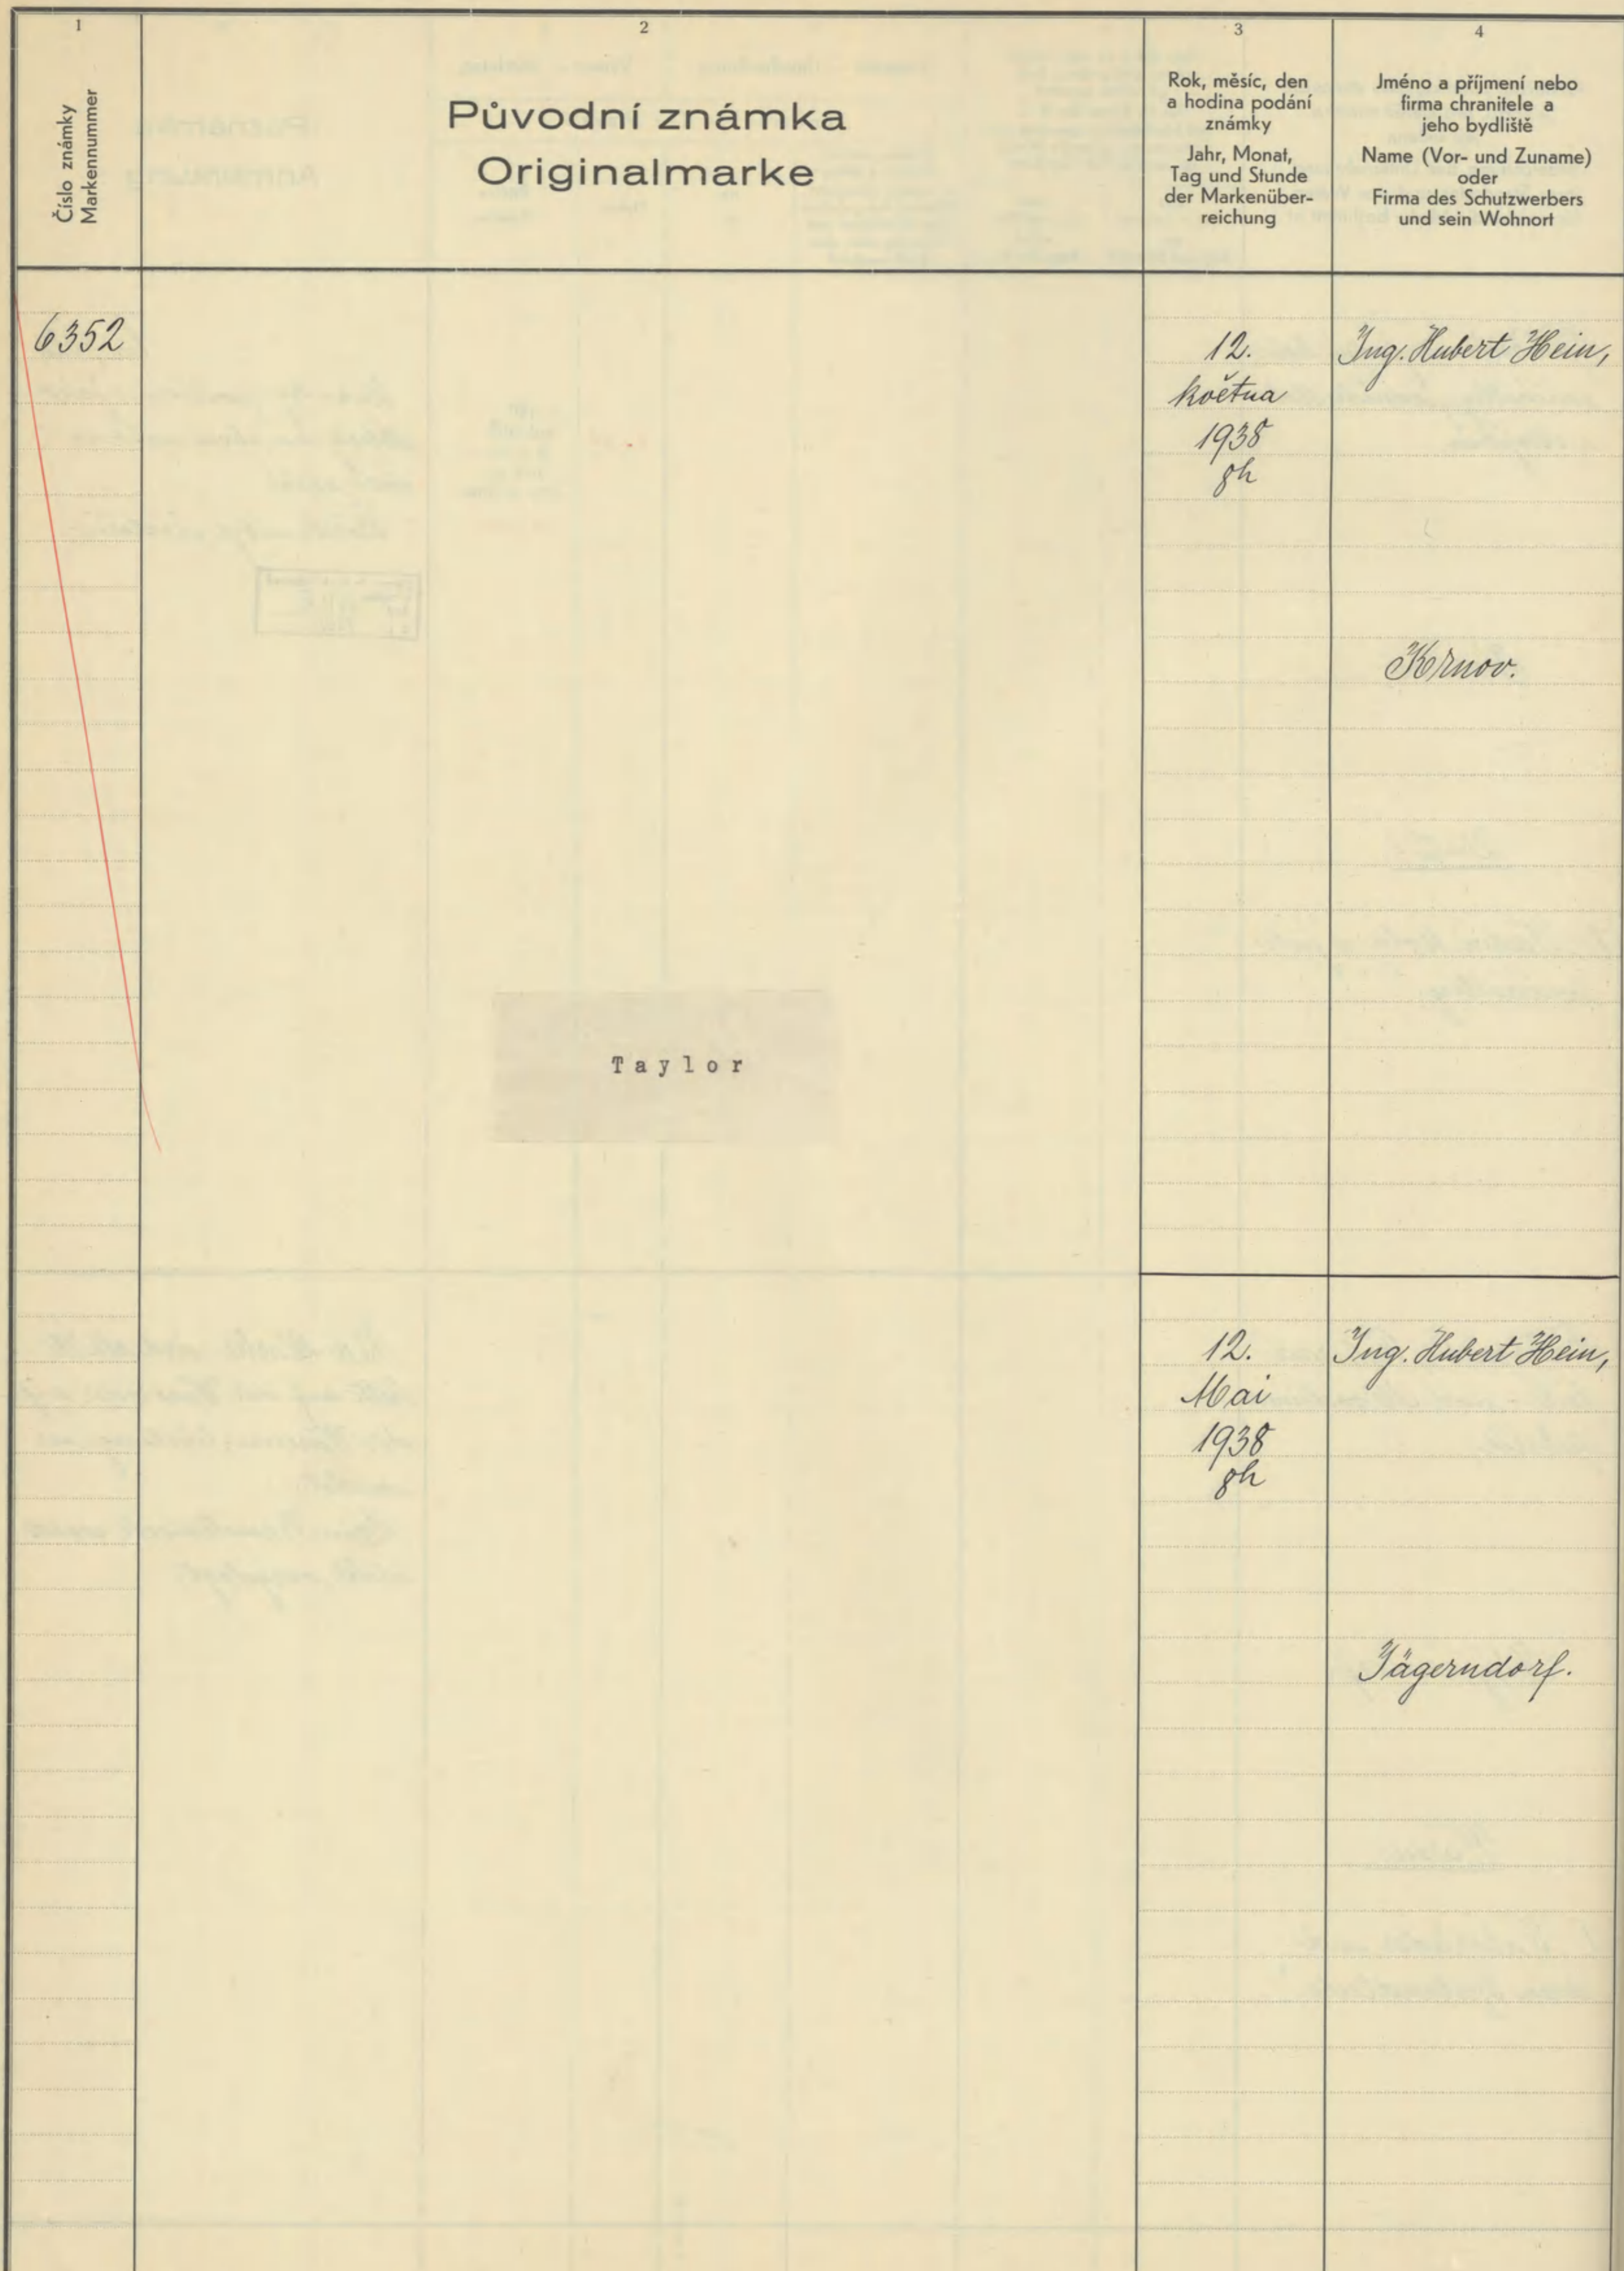 1
Číslo známky
Markennummer
2
Původní známka
Originalmarke
3
Rok, měsíc, den
a hodina podání
známky
Jahr, Monat,
Tag und Stunde
der Markenüber-
reichung
4
Jméno a příjmení nebo
firma chranitele a
jeho bydliště
Name (Vor- und Zuname)
oder
Firma des Schutzwerbers
und sein Wohnort
6352
Taylor
12.
května
1938
8h
Ing. Hubert Hein,
Krnov.
12.
Mai
1938
8h
Ing. Hubert Hein,
Jägerndorf.